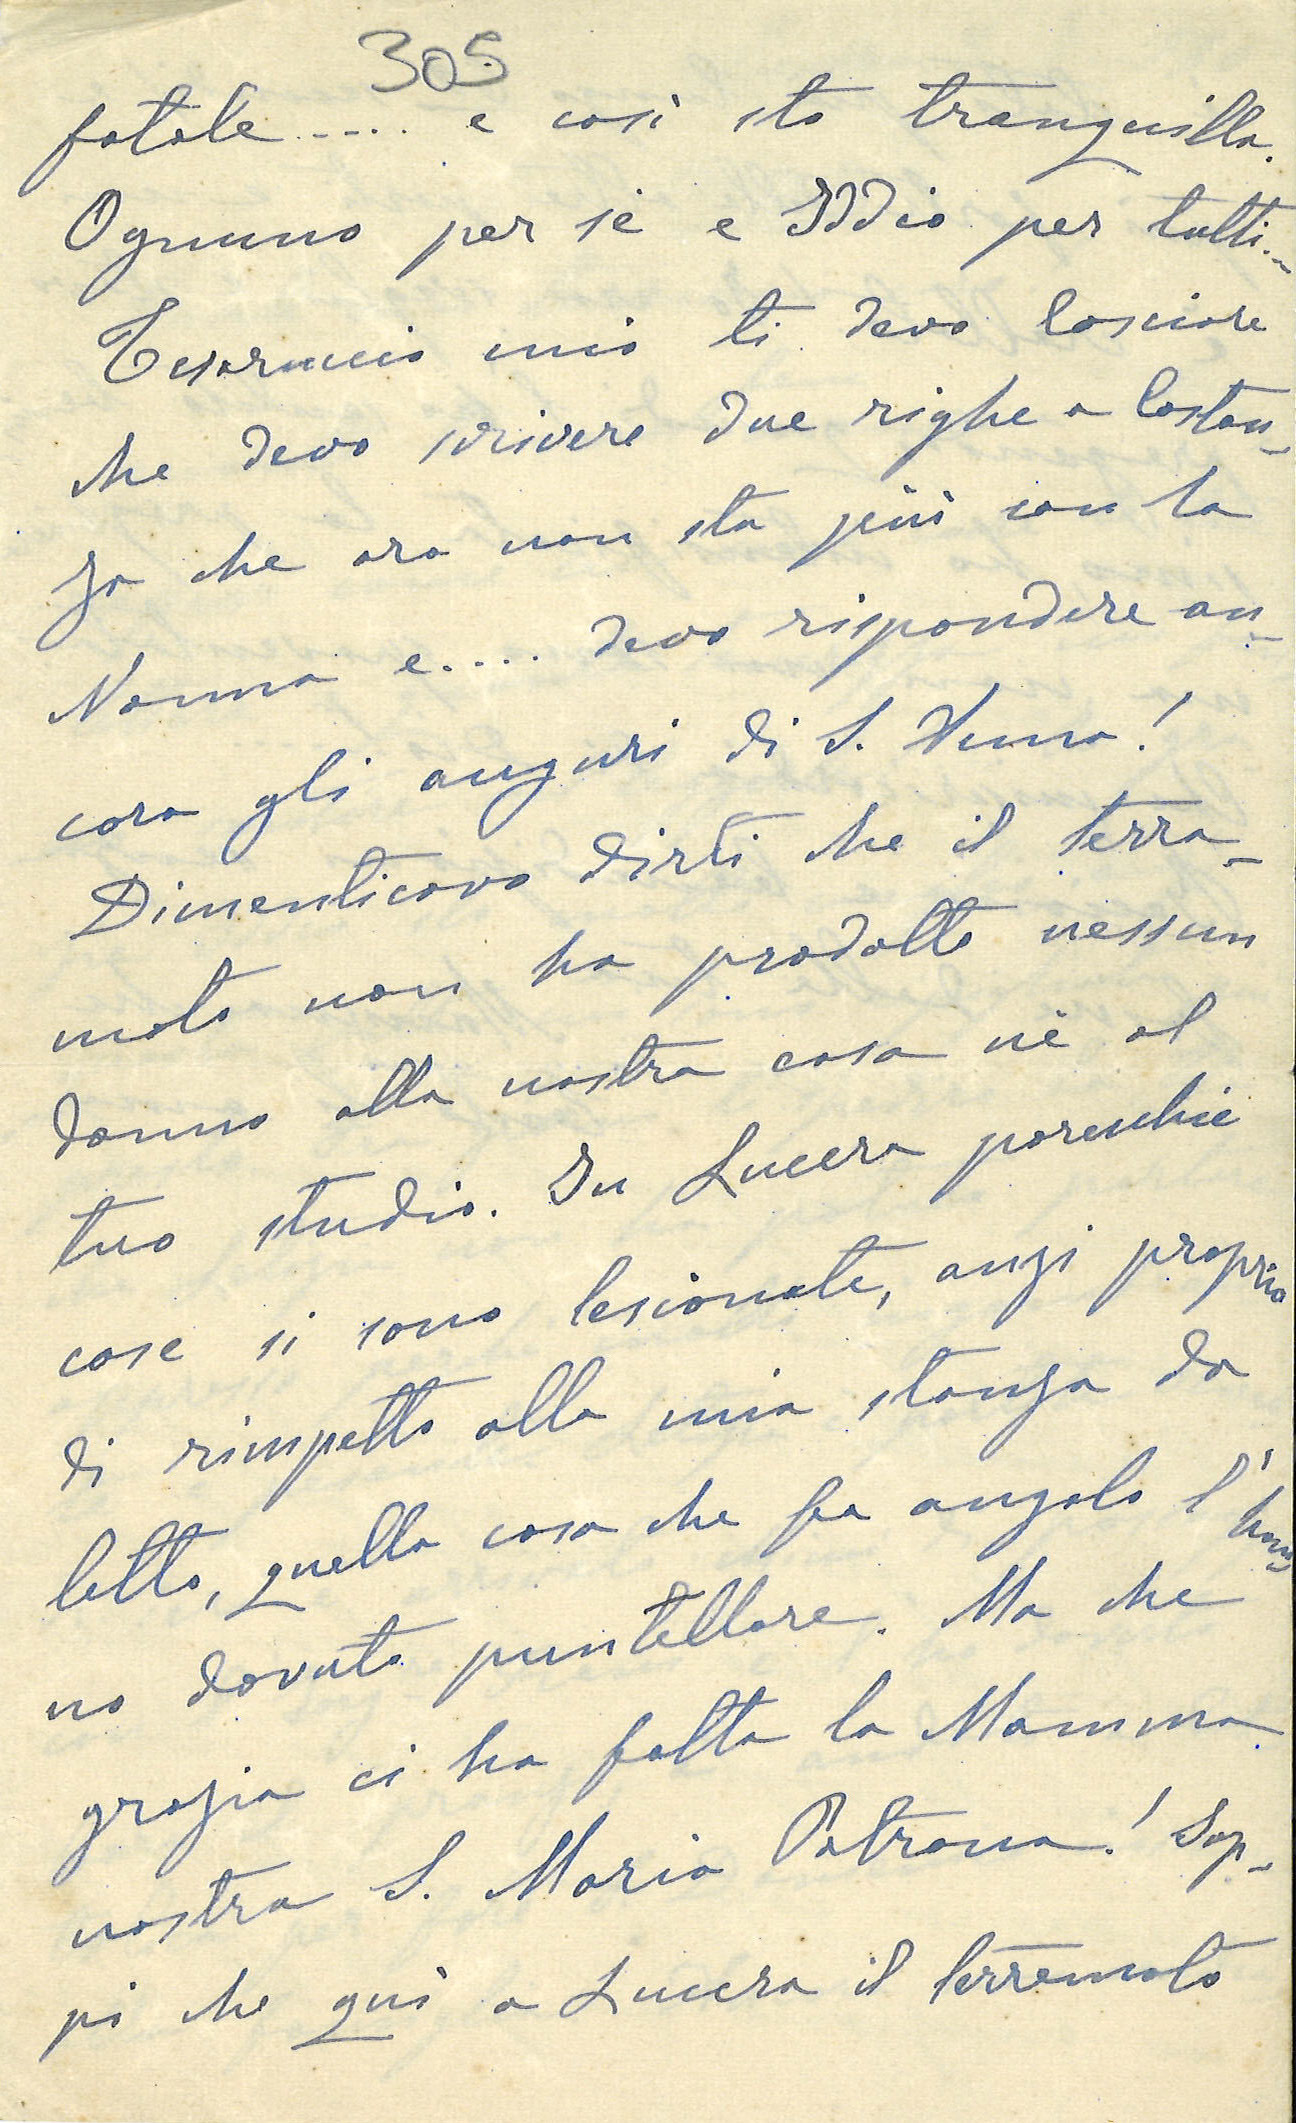 305
fatale .... e così sto tranquilla.
Ognuno per sè e Iddio per tutti.-
Tesoruccio mio ti devo lasciare
che devo scrivere due righe a Costan-
za che ora non sta più con la
Nonna e.... devo rispondere an-
cora gli auguri di S. Anna!
Dimenticavo dirti che il terre-
moto non ha prodotto nessun
danno alla nostra casa nè al
tuo studio. In Lucera parecchie
case si sono lesionate, anzi proprio
di rimpetto alla mia stanza da
letto, quella casa che fa angolo l'han-
no dovuto puntellare. Ma che
grazia ci ha fatta la Mamma
nostra S. Maria Patrona! Sap-
pi che quì a Lucera il terremoto